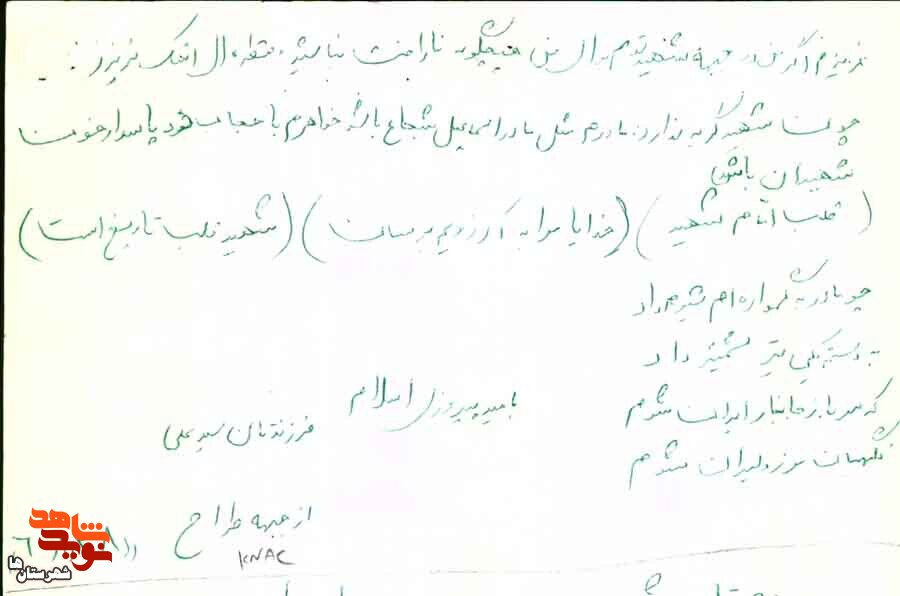 عزیزم اگر من در جبهه شهید شدم برای من هیچگونه ناراحت نباشید، قطره ای اشک نریزید
چون شهید گریه ندارد، مادرم مثل مادر اسماعیل شجاع باش خواهرم با حجاب خود پاسدار خون
شهیدان باش
(قلب امام شهید) (خدایا مرا به آرزویم برسان) (شهید قلب تاریخ است)
چو مادر به گهواره ام شیر داد
به دستم یکی تیر شمشیر داد
که سرباز جانباز ایران شوم
نگهبان مرز دلیران شوم
بامید پیروزی اسلام
فرزندتان سید علی
از جبهه طراح
نوید شاهد
شهرستان ها